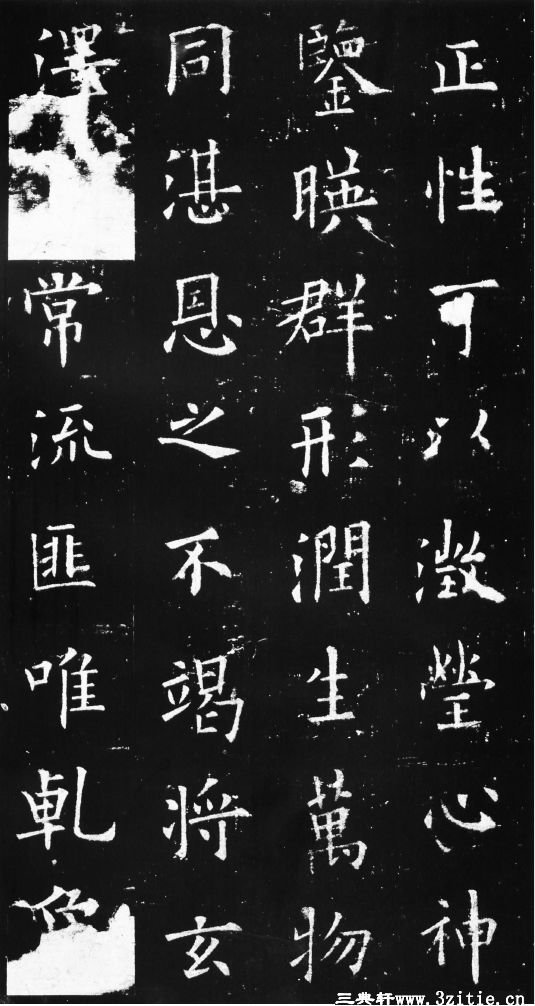 正性可以澂瑩心神
鑒暎群形潤生萬物
同湛恩之不竭將玄
澤常流匪唯乹
三典轩www.3zitie.cn